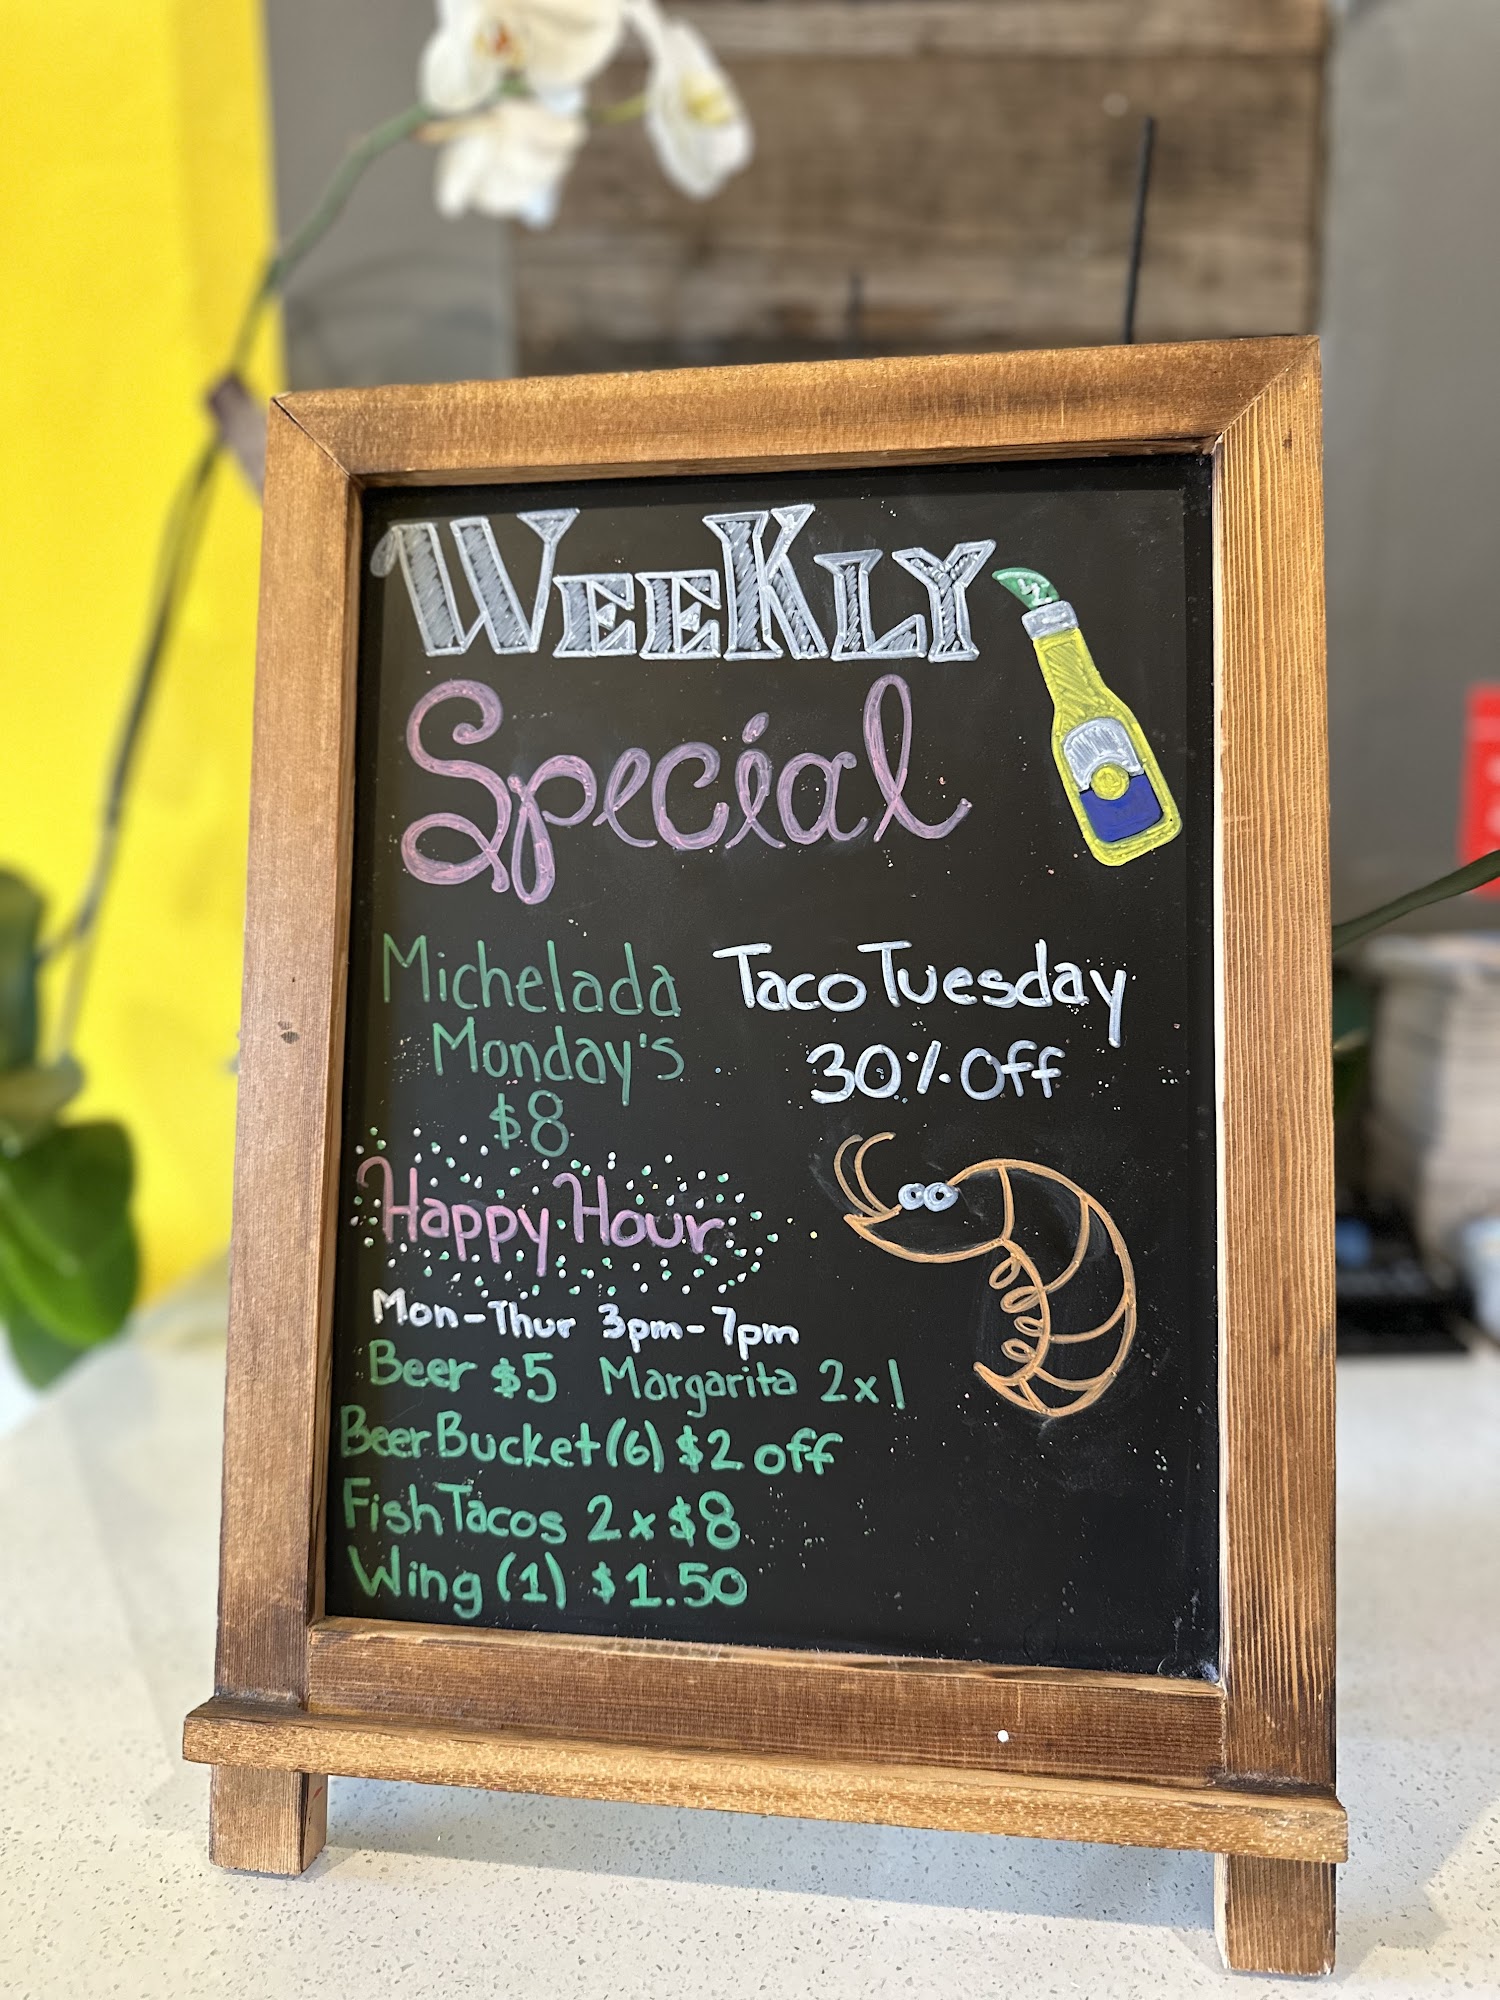 WEEKLY
Special
Michelada
Monday's
$8
Taco Tuesday
30% Off
Happy Hour
Mon-Thur 3pm-7pm
Beer $5 Margarita 2x1
Beer Bucket (6) $2 off
Fish Tacos 2x $8
Wing (1) $1.50